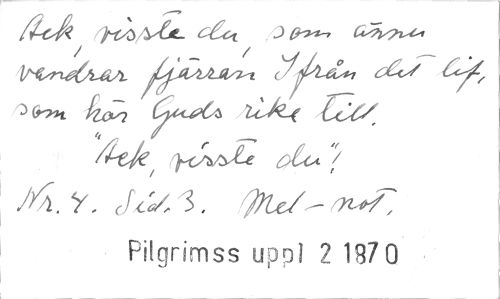 Ack, visste du, som ännu
vandrar fjärran Ifrån det lif,
som hör Guds rike till.
"Ack, visste du"!
Nr. 4. Sid. 3. Mel-not.
Pilgrimss uppl 2 1870